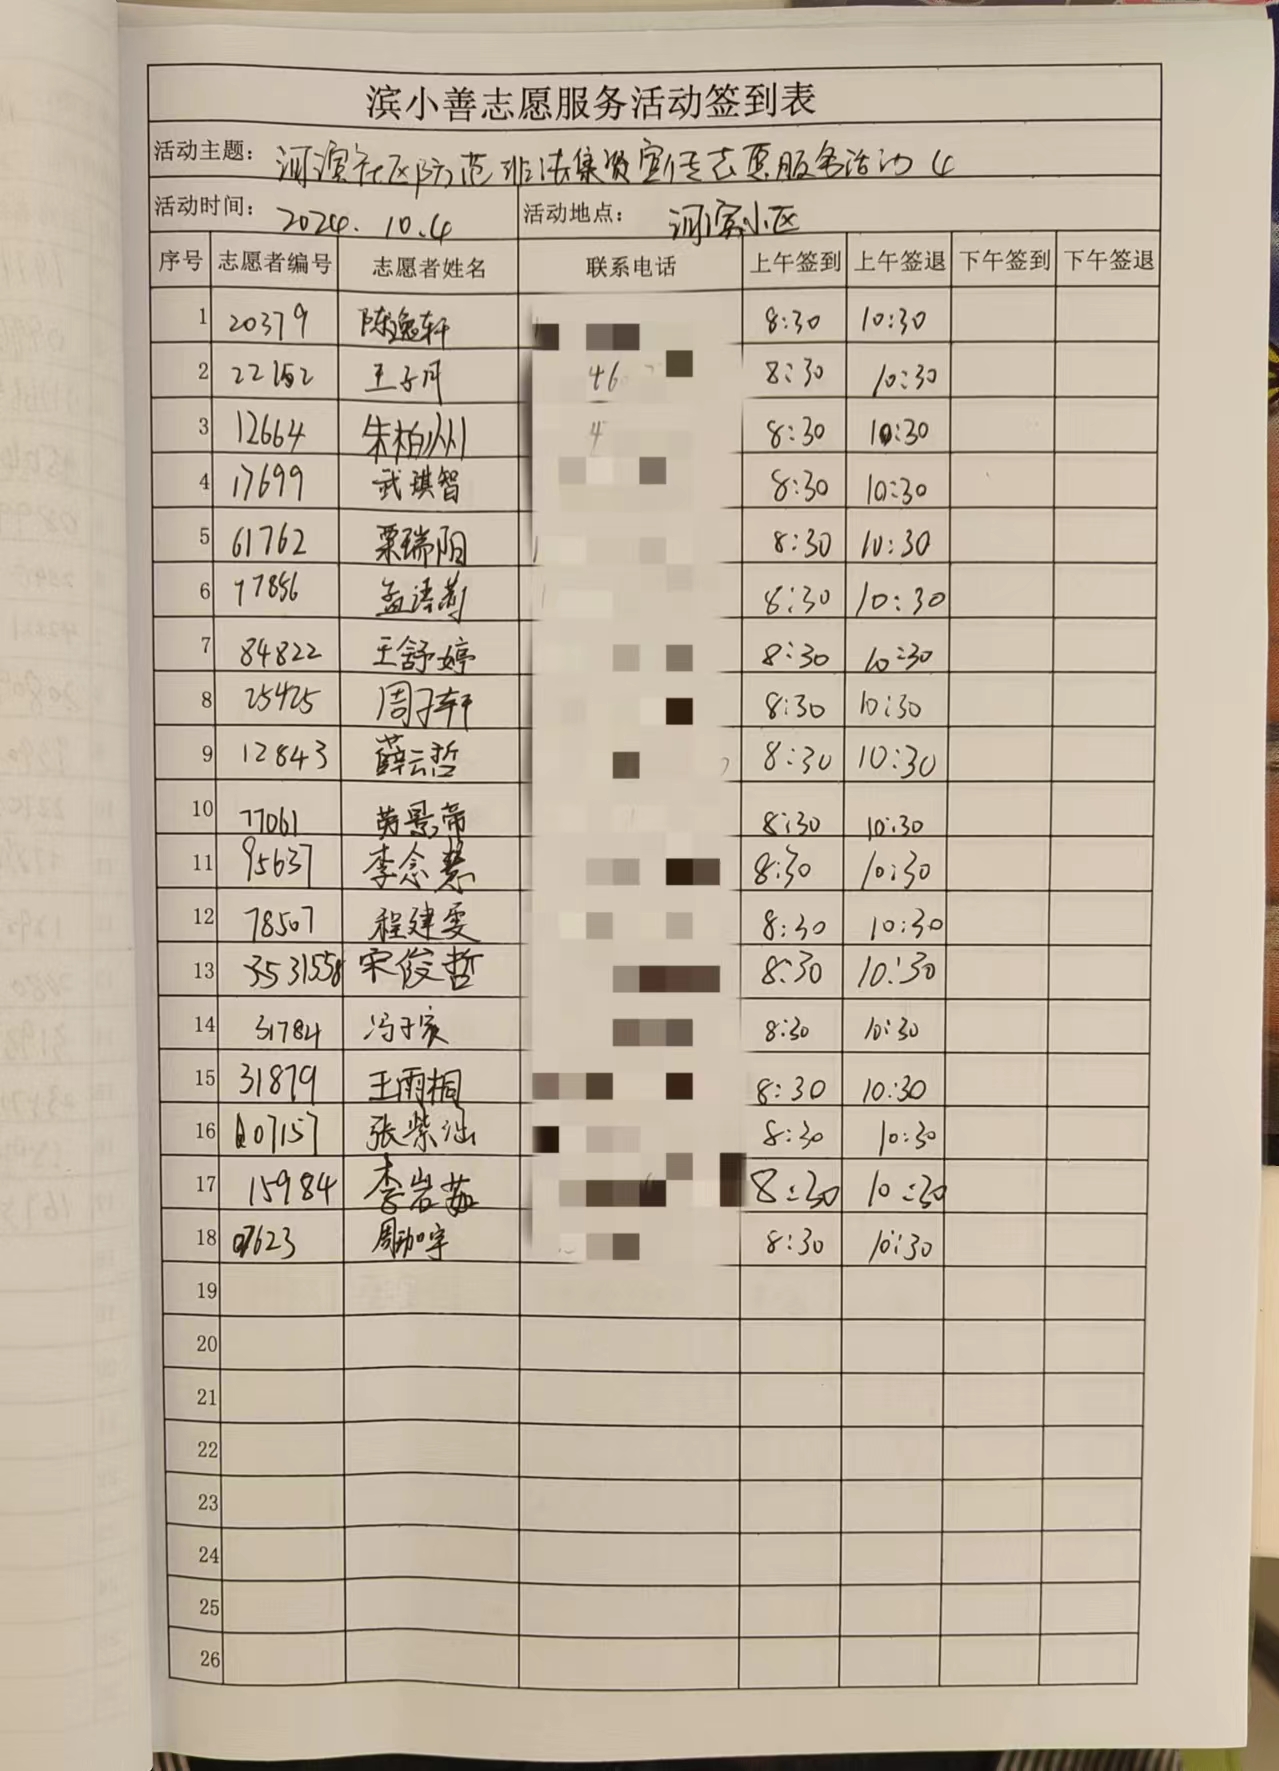 滨小善志愿服务活动签到表
活动主题: 河滨社区防范非法集资宣传志愿服务活动 4
活动时间: 2024. 10.4 活动地点: 河滨小区
序号 志愿者编号 志愿者姓名 联系电话 上午签到 上午签退 下午签到 下午签退
1 20379 陈逸轩 8:30 10:30
2 22152 王子月 46 8:30 10:30
3 12664 朱柏州 4 8:30 10:30
4 17699 武琪智 8:30 10:30
5 61762 栗瑞阳 8:30 10:30
6 77856 孟语莉 8:30 10:30
7 84822 王舒婷 8:30 10:30
8 25425 周子轩 8:30 10:30
9 12843 薛云哲 8:30 10:30
10 77061 8:30 10:30
11 95637 李念慧 8:30 10:30
12 78507 程建雯 8:30 10:30
13 3531558 宋俊哲 8:30 10:30
14 31784 冯子宸 8:30 10:30
15 31879 王雨桐 8:30 10:30
16 07157 张紫涵 8:30 10:30
17 15984 李岩茹 8:30 10:30
18 07623 周珈宇 8:30 10:30
19
20
21
22
23
24
25
26